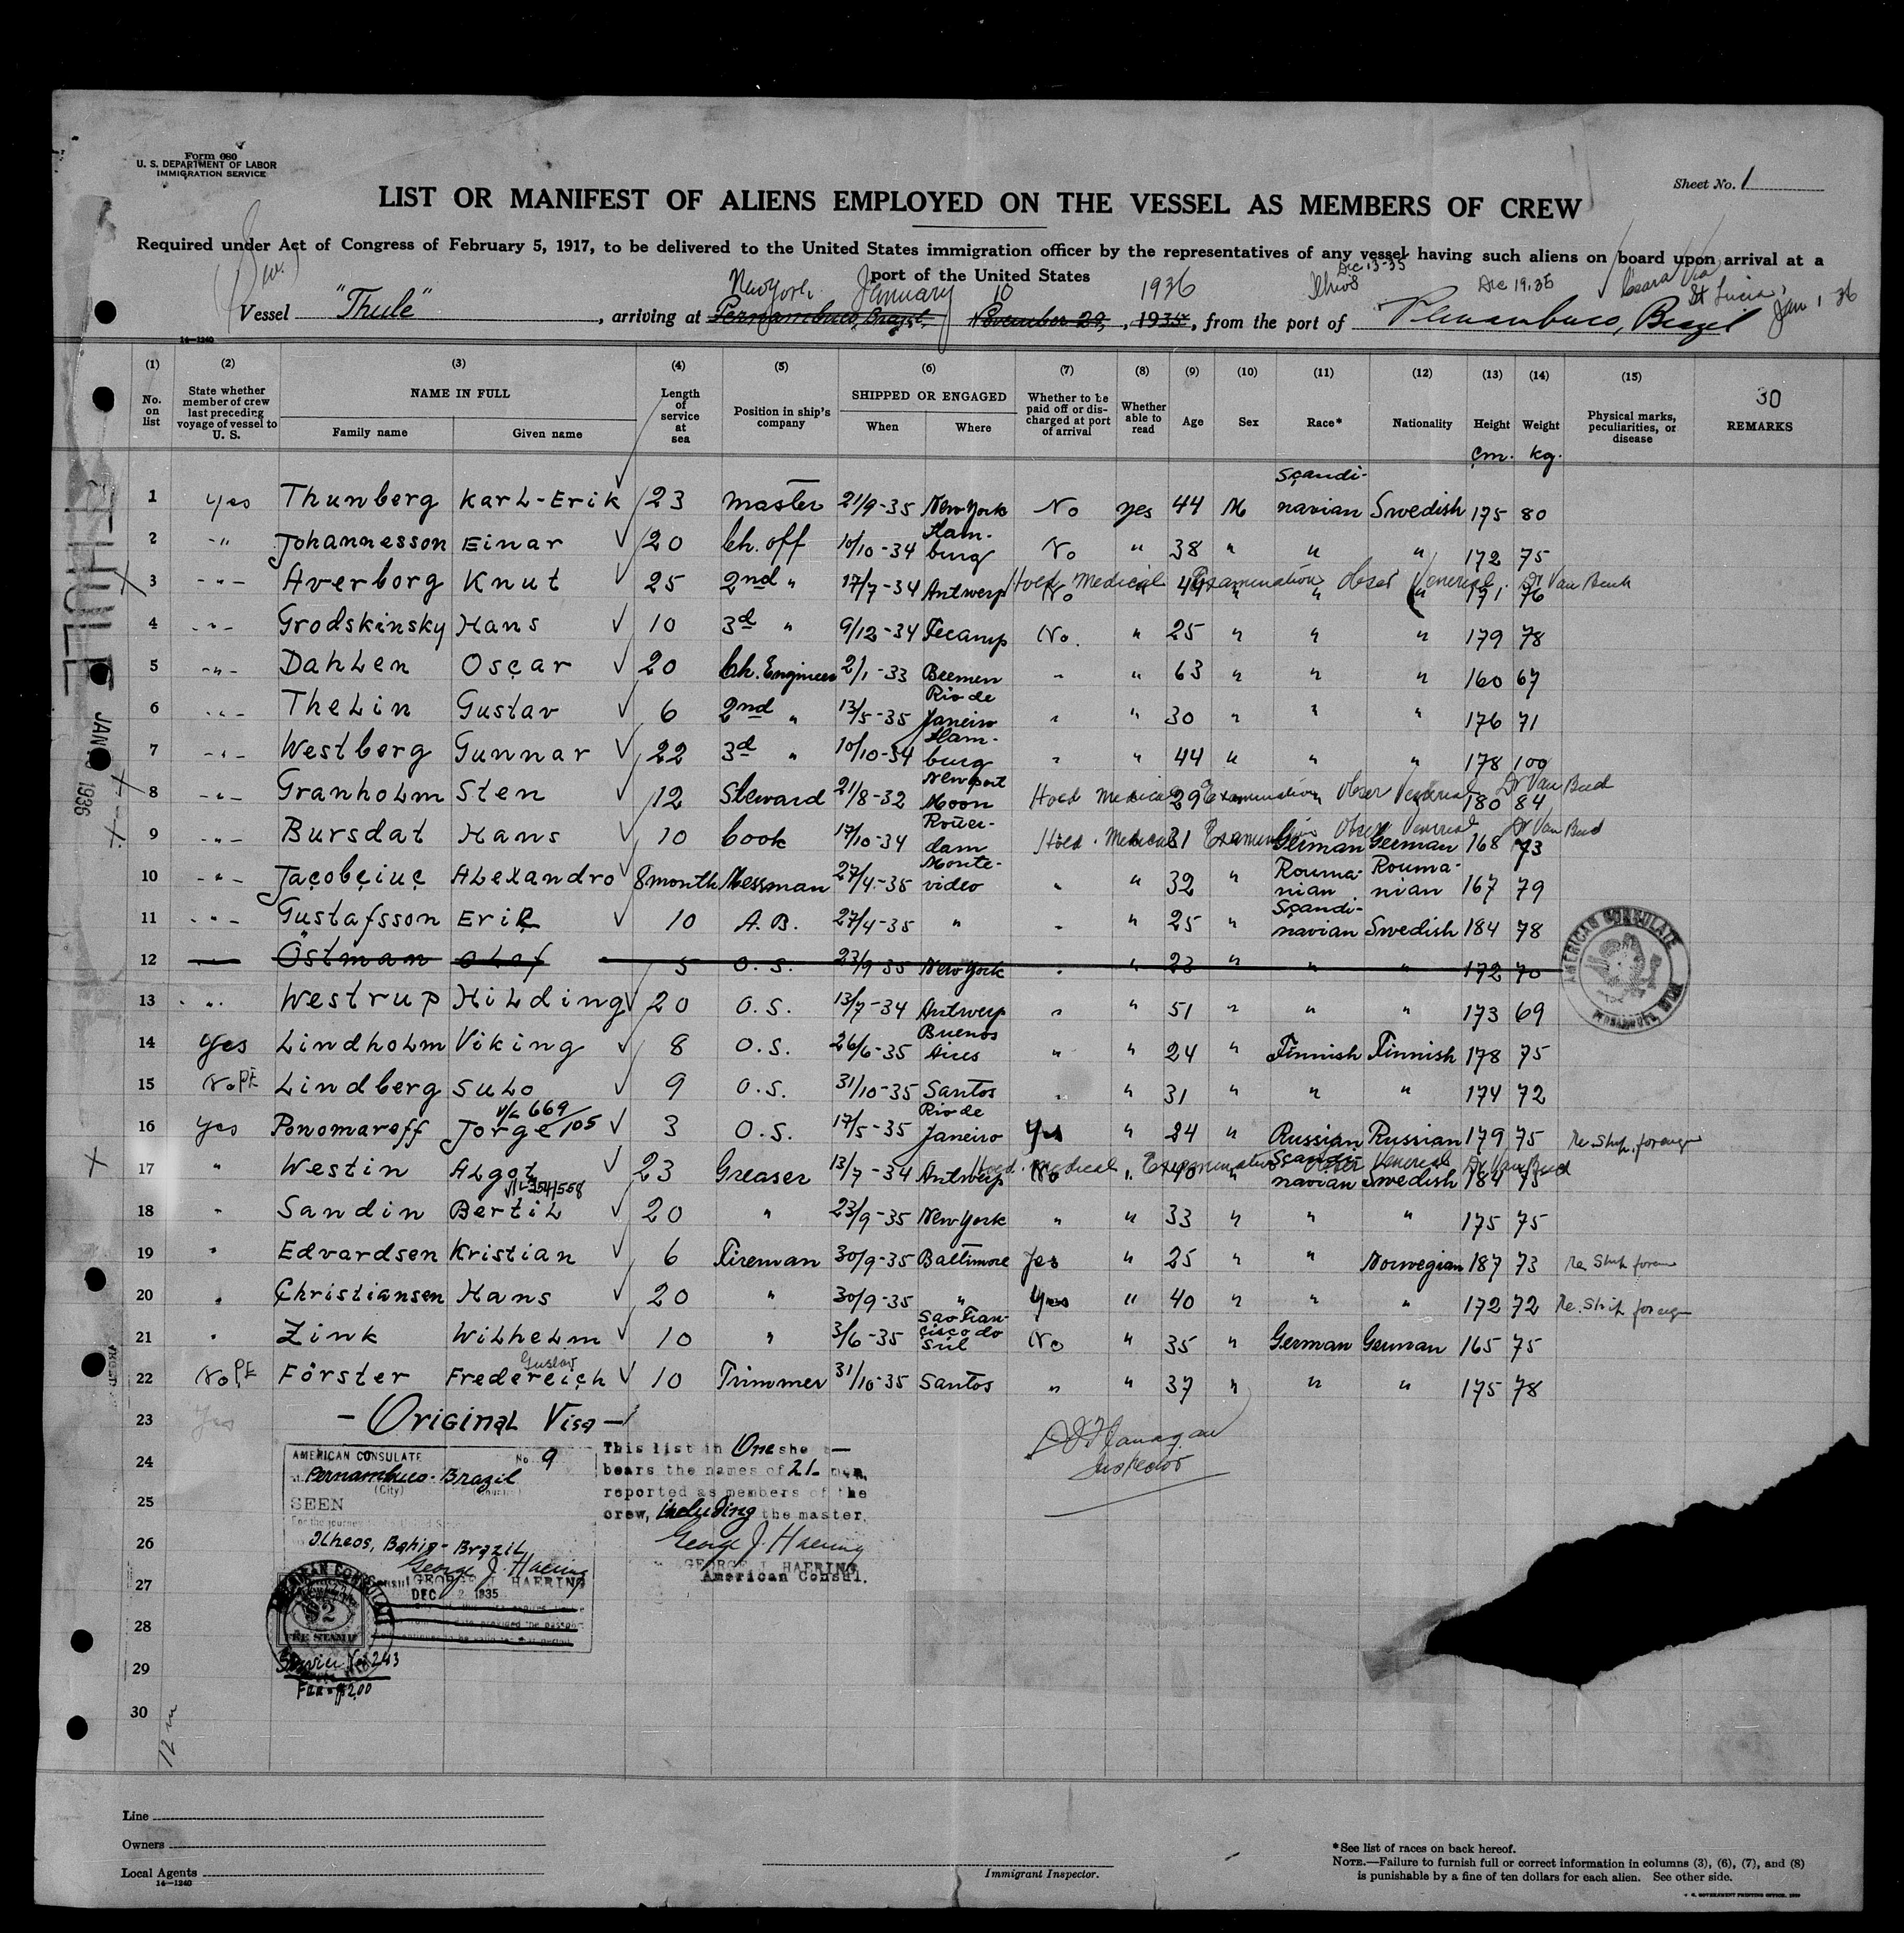 Form 680
U. S. DEPARTMENT OF LABOR
IMMIGRATION SERVICE
Sheet No. 1
LIST OR MANIFEST OF ALIENS EMPLOYED ON THE VESSEL AS MEMBERS OF CREW
Required under Act of Congress of February 5, 1917, to be delivered to the United States immigration officer by the representatives of any vessel having such aliens on board upon arrival at a
port of the United States
Dec 13-35
New York January 10 1936 Dec 19.35 Ceara Via St Lucia, Jan 1 36
Vessel "Thule", arriving at Pernambuco, Brazil, November 29, 1935, from the port of Pernambuco, Brazil
14—1240
(1) (2) (3) (4) (5) (6) (7) (8) (9) (10) (11) (12) (13) (14) (15)
No. on list State whether member of crew last preceding voyage of vessel to U. S. NAME IN FULL Family name Given name Length of service at sea Position in ship's company SHIPPED OR ENGAGED When Where Whether to be paid off or discharged at port of arrival Whether able to read Age Sex Race* Nationality Height Weight Physical marks, peculiarities, or disease 30 REMARKS
cm. kg.
1 Yes Thunberg Karl-Erik 23 Master 21/9-35 New York No yes 44 M Scandinavian Swedish 175 80
2 " Johannesson Einar 20 Ch. off 10/10-34 Hamburg No " 38 " " " 172 75
3 " Averborg Knut 25 2nd " 17/7-34 Antwerp No " " " " 171 76 Hold Medical Examination Obser Venereal
4 " Grodskinsky Hans 10 3d " 9/12-34 Fecamp No. " 25 " " " 179 78
5 " Dahlen Oscar 20 Ch. Engineer 2/1-33 Bremen " " 63 " " " 160 67
6 " Thelin Gustav 6 2nd " 13/5-35 Rio de Janeiro " " 30 " " " 176 71
7 " Westberg Gunnar 22 3d " 10/10-34 Hamburg " " 44 " " " 178 100
8 " Granholm Sten 12 Steward 21/8-32 Newport Moon 29 " 180 84 Hold Medical Examination Obser Venereal
9 " Bursdat Hans 10 Cook 17/10-34 31 German German 168 73 Hold Medical Examination Obser Venereal
10 " Jacobciuc Alexandro 8 month Messman 27/4-35 Montevideo " " 32 " Roumanian Roumanian 167 79
11 " Gustafsson Eric 10 A.B. 27/4-35 " " " 25 " Scandinavian Swedish 184 78
12 " Östman Olof 5 O.S. 23/9-35 New York " " 23 " " " 172 70
13 " Westrup Hilding 20 O.S. 13/7-34 Antwerp " " 51 " " " 173 69
14 Yes Lindholm Viking 8 O.S. 26/6-35 Buenos Aires " " 24 " Finnish Finnish 178 75
15 No PE Lindberg Sulo 9 O.S. 31/10-35 Santos " " 31 " " " 174 72
16 Yes Ponomaroff Jorge 3 O.S. 17/5-35 Rio de Janeiro Yes " 24 " Russian Russian 179 75 Re Ship. foreign
17 " Westin Algot 23 Greaser 13/7-34 Antwerp No " 40 " Scandinavian Swedish 184 75 Hold Medical Examination Obser Venereal
18 " Sandin Bertil 20 " 23/9-35 New York " " 33 " " " 175 75
19 " Edvardsen Kristian 6 Fireman 30/9-35 Baltimore Yes " 25 " " Norwegian 187 73 Re Ship
20 " Christiansen Hans 20 " 30/9-35 " Yes " 40 " " " 172 72 Re. Ship foreign
21 " Zink Wilhelm 10 " 3/6-35 Sao Francisco do Sul No " 35 " German German 165 75
22 No PE Förster Gustav Fredereich 10 Trimmer 31/10-35 Santos " " 37 " " " 175 78
23 Yes - Original Visa -
24
25
26
27
28
29
30
AMERICAN CONSULATE No 9
Pernambuco - Brazil
(City) (Country)
SEEN
For the journey to the United States
Ilheos, Bahia - Brazil
George J. Haering
GEORGE J. HAERING
DEC 2 1935
AMERICAN CONSULATE
$2
FEE STAMP
Service No 243
Fee = $2.00
This list in One sheet
bears the names of 21 men,
reported as members of the
crew, including the master.
George J. Haering
GEORGE J. HAERING
American Consul.
Flanagan
Inspector
AMERICAN CONSULATE
PERNAMBUCO, BRAZIL
THULE
JAN 1936
Line
Owners
Local Agents
14—1240
Immigrant Inspector.
*See list of races on back hereof.
NOTE.—Failure to furnish full or correct information in columns (3), (6), (7), and (8)
is punishable by a fine of ten dollars for each alien. See other side.